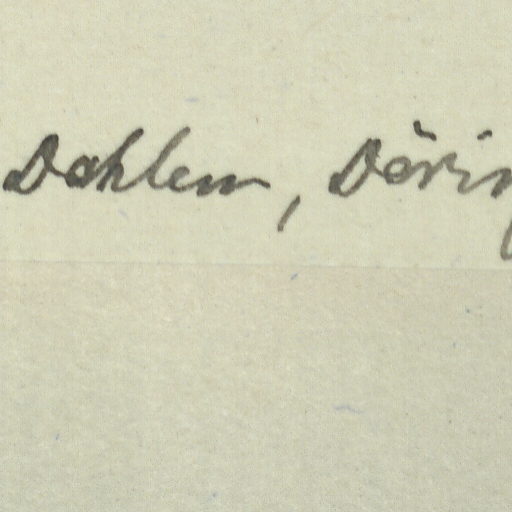 Dahlem, Döring